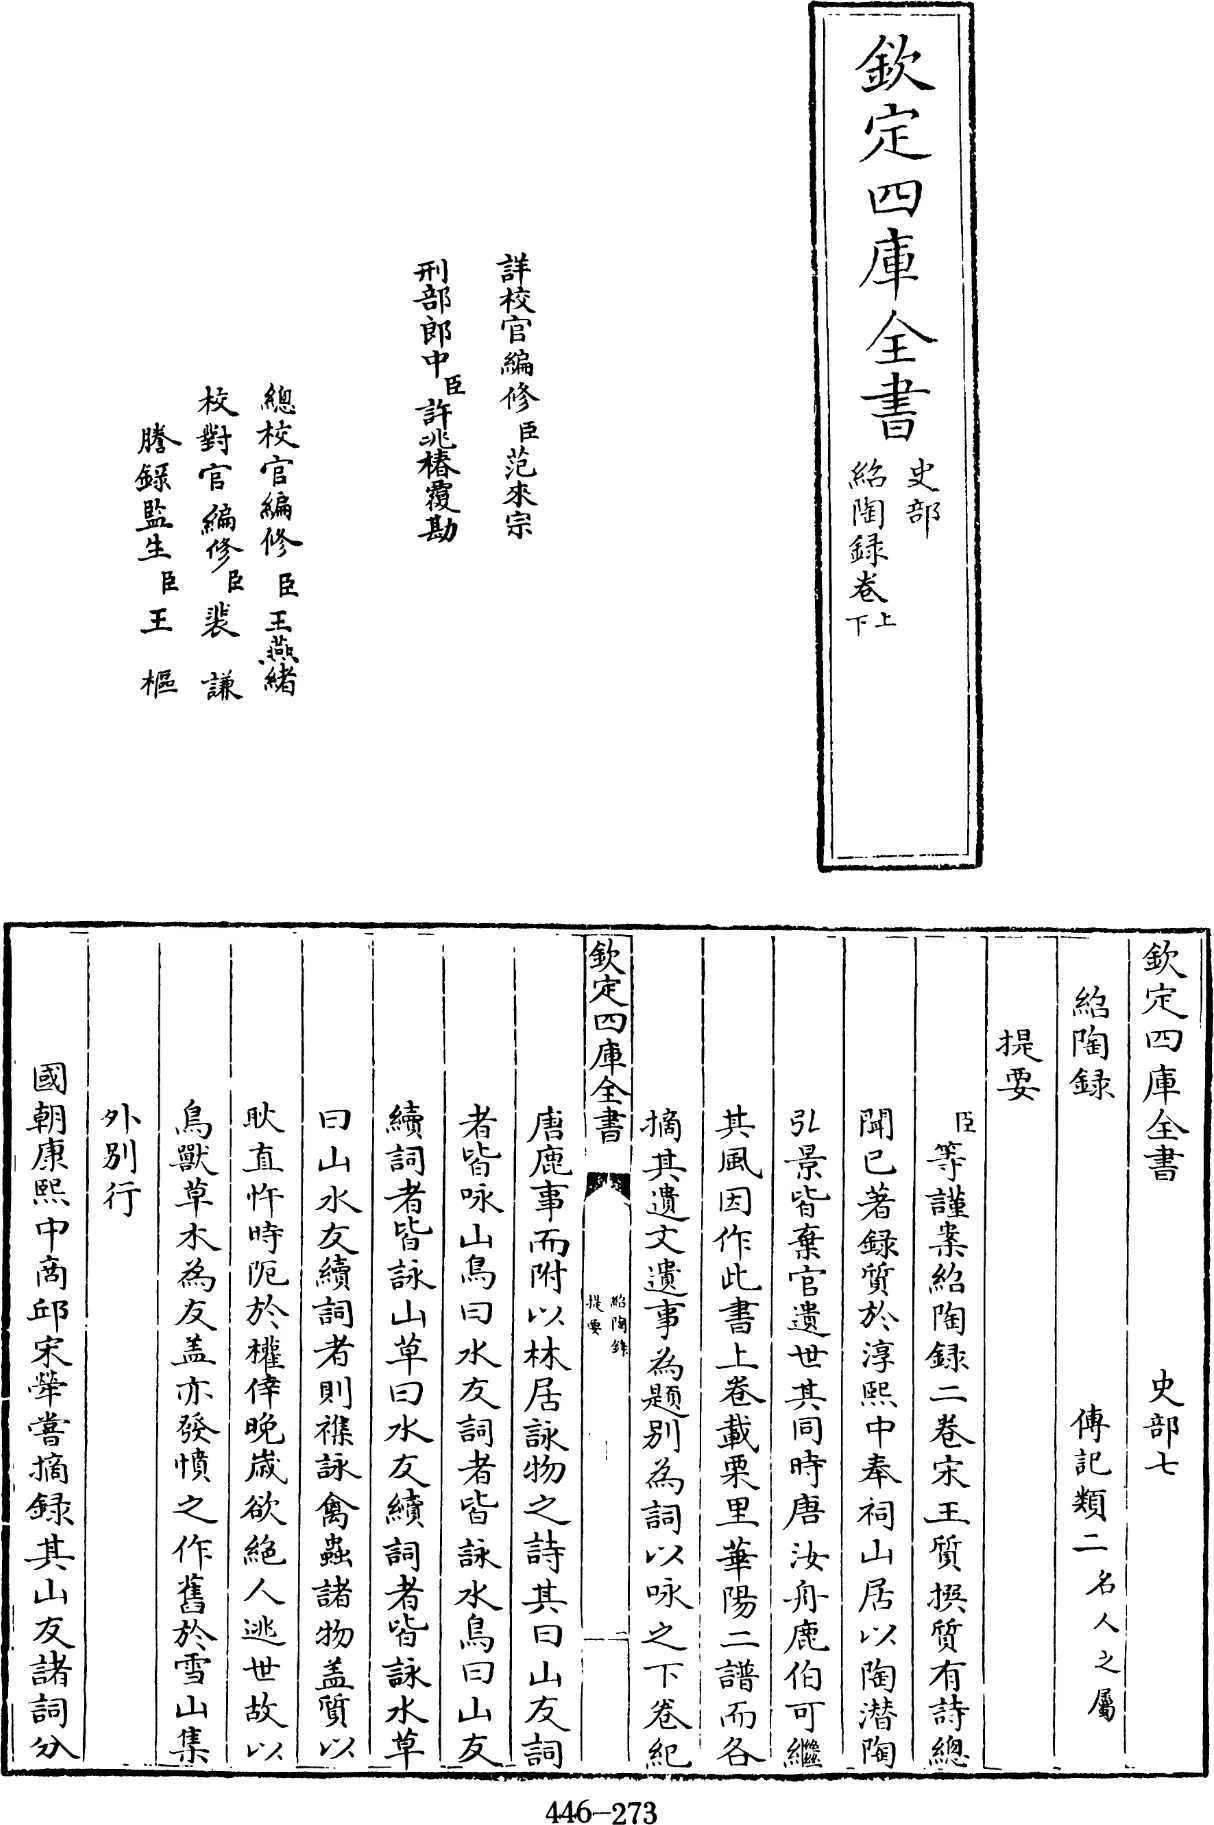 欽定四庫全書
史部
紹陶録卷上下
詳校官編修臣范來宗
刑部郎中臣許兆椿覆勘
總校官編修臣王燕緒
校對官編修臣裴謙
謄録監生臣王樞
欽定四庫全書 史部七
紹陶録 傳記類二名人之屬
提要
臣等謹案紹陶録二卷宋王質撰質有詩總
聞已著録質於淳熙中奉祠山居以陶潜陶
弘景皆棄官遺世其同時唐汝舟鹿伯可繼
其風因作此書上卷載栗里華陽二譜而各
摘其遺文遺事為題别為詞以咏之下卷紀
欽定四庫全書 紹陶録提要 一
唐鹿事而附以林居詠物之詩其曰山友詞
者皆咏山鳥曰水友詞者皆詠水鳥曰山友
續詞者皆詠山草曰水友續詞者皆詠水草
曰山水友續詞者則襍詠禽蟲諸物盖質以
耿直忤時阨於權倖晚歳欲絶人逃世故以
鳥獸草木為友盖亦發憤之作舊於雪山集
外别行
國朝康熙中商邱宋犖嘗摘録其山友諸詞分
446-273